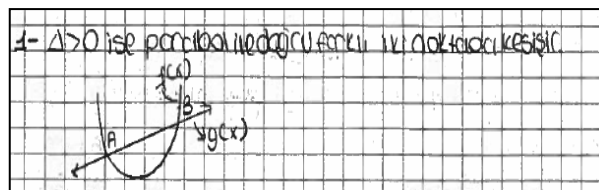 1- Δ>0 ise parabol ile doğru farklı iki noktada kesişir.
f(x)
B
A
g(x)